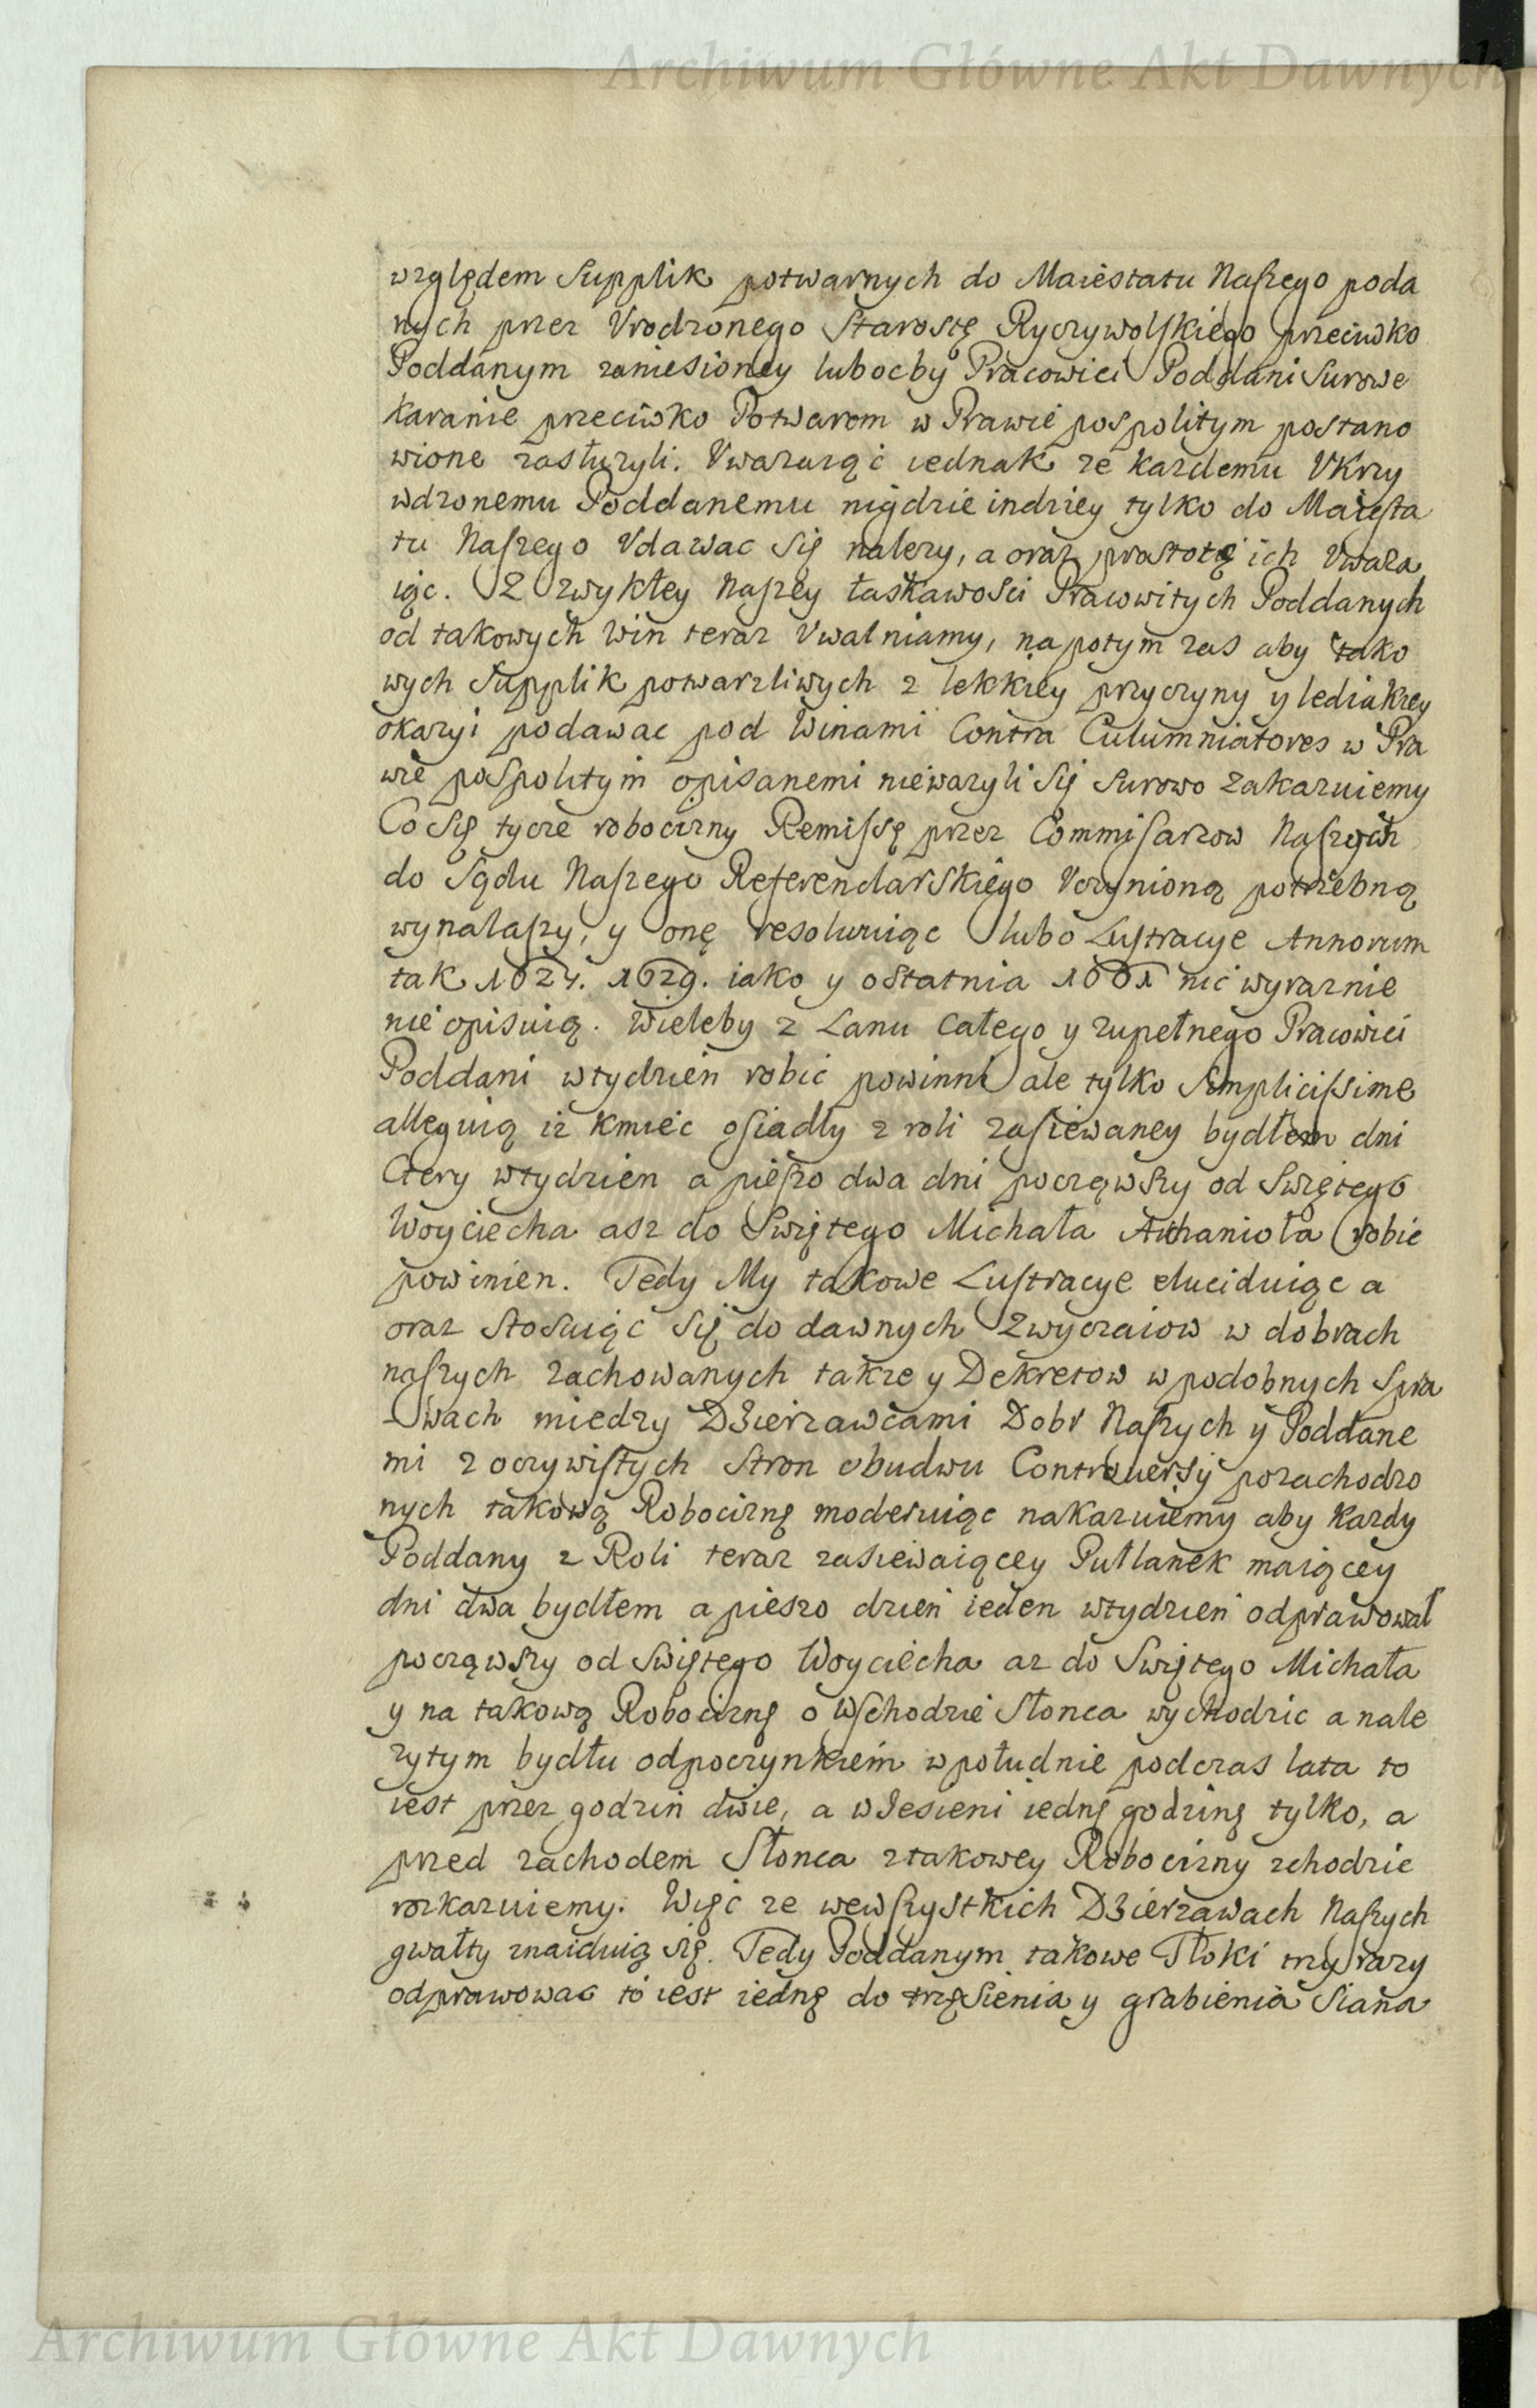 Archiwum Główne Akt Dawnych
względem Supplik potwarnych do Maiestatu Naszego poda
nych przez Vrodzonego Starostę Ryczywolskiego przeciwko
Poddanym zaniesioney lubocby Pracowici Poddani Surowe
karanie przeciwko Potwarom w Prawie pospolitym postano
wione zasłuzyli. Vwazaiąc iednak ze kazdemu Vkrzy
wdzonemu Poddanemu nigdzie indziey tylko do Maiesta
tu Naszego Vdawac się nalezy, a oraz prostotę ich Vwaza
iąc. Z zwykłey Naszey łaskawosci Pracowitych Poddanych
od takowych Win teraz Vwalniamy, napotym zas aby tako
wych Supplik potwarzliwych z lekkiey przyczyny y lediakiey
okazyi podawac pod Winami Contra Culumniatores w Pra
wie pospolitym opisanemi niewazyli się surowo zakazuiemy
Co się tycze robocizny Remissę przez Commisarzow Naszych
do Sądu Naszego Referendarskiego Vczynioną potrzebną
wynalaszy, y onę resolwuiąc lubo Lustracye Annorum
tak 1624. 1629. iako y ostatnia 1661 nic wyraznie
nie opisuią. Wieleby z Lanu całego y zupełnego Pracowici
Poddani wtydzien robic powinni ale tylko Simplicissime
alleguią iz Kmiec osiadły z roli zasiewaney bydłem dni
Ctery wtydzien a pieszo dwa dni począwszy od Swiętego
Woyciecha asz do Swiętego Michała Archanioła robic
powinien. Tedy My takowe Lustracye eluciduiąc a
oraz stosuiąc się do dawnych Zwyczaiow w dobrach
naszych zachowanych takze y Dekretow w podobnych Spra
wach miedzy Dzierzawcami Dobr Naszych y Poddane
mi z oczywistych Stron obudwu Controuersy pozachodzo
nych takową Robociznę moderuiąc nakazuiemy aby kazdy
Poddany z Roli teraz zasiewaiącey Pułlanek maiącey
dni dwa bydłem a pieszo dzien ieden wtydzien odprawował
począwszy od Swiętego Woyciecha az do Swiętego Michała
y na takową Robociznę o Wschodzie Słonca wychodzic a nale
zytym bydłu odpoczynkiem wpołudnie podczas lata to
iest przez godzin dwie, a wIesieni iednę godzinę tylko, a
przed zachodem Słonca ztakowey Robocizny schodzic
rozkazuiemy. Więc ze wewszystkich Dzierzawach Naszych
gwałty znaiduią się. Tedy Poddanym takowe Tłoki trzy razy
odprawowac to iest iednę do trzęsienia y grabienia Siana
Archiwum Główne Akt Dawnych